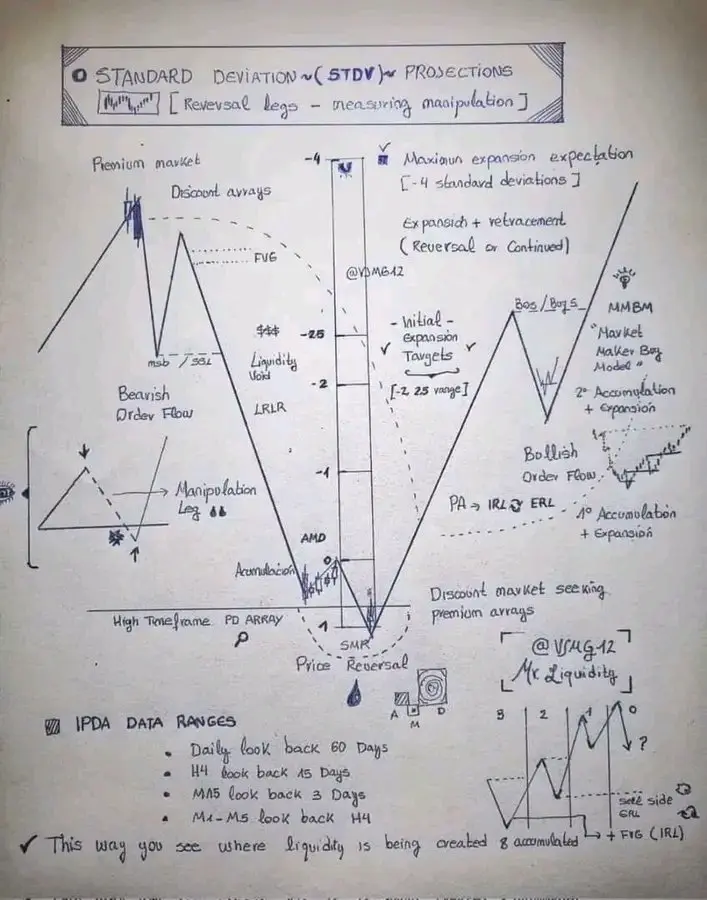 STANDARD DEVIATION ~(STDV)~ PROJECTIONS
[Reversal legs - measuring manipulation]
Premium market
Discount arrays
FVG
msb / SSL
Bearish
Order Flow
$$$
Liquidity
Void
LRLR
-4
-2.5
-2
-1
0
1
@VSMG12
✓ Maximun expansion expectation
[-4 standard deviations]
Expansion + retracement
(Reversal or Continued)
- Initial -
✓ Expansion ✓
Targets
[-2, 2.5 range]
BOS / BOGS
MMBM
"Market
Maker Buy
Model"
2º Accumulation
+ Expansion
Bollish
Order Flow
PA → IRL ERL
1º Accumulation
+ Expansion
→ Manipulation
Leg
AMD
Acumulación
High Timeframe PD ARRAY
SMR
Price Reversal
A M D
Discount market seeking
premium arrays
@VSMG12
Mr. Liquidity
IPDA DATA RANGES
• Daily look back 60 Days
• H4 look back 15 Days
• M15 look back 3 Days
• M1-M5 look back H4
3 2 1 0
?
sell side
ERL
→ + FVG (IRL)
✓ This way you see where liquidity is being created & accumulated